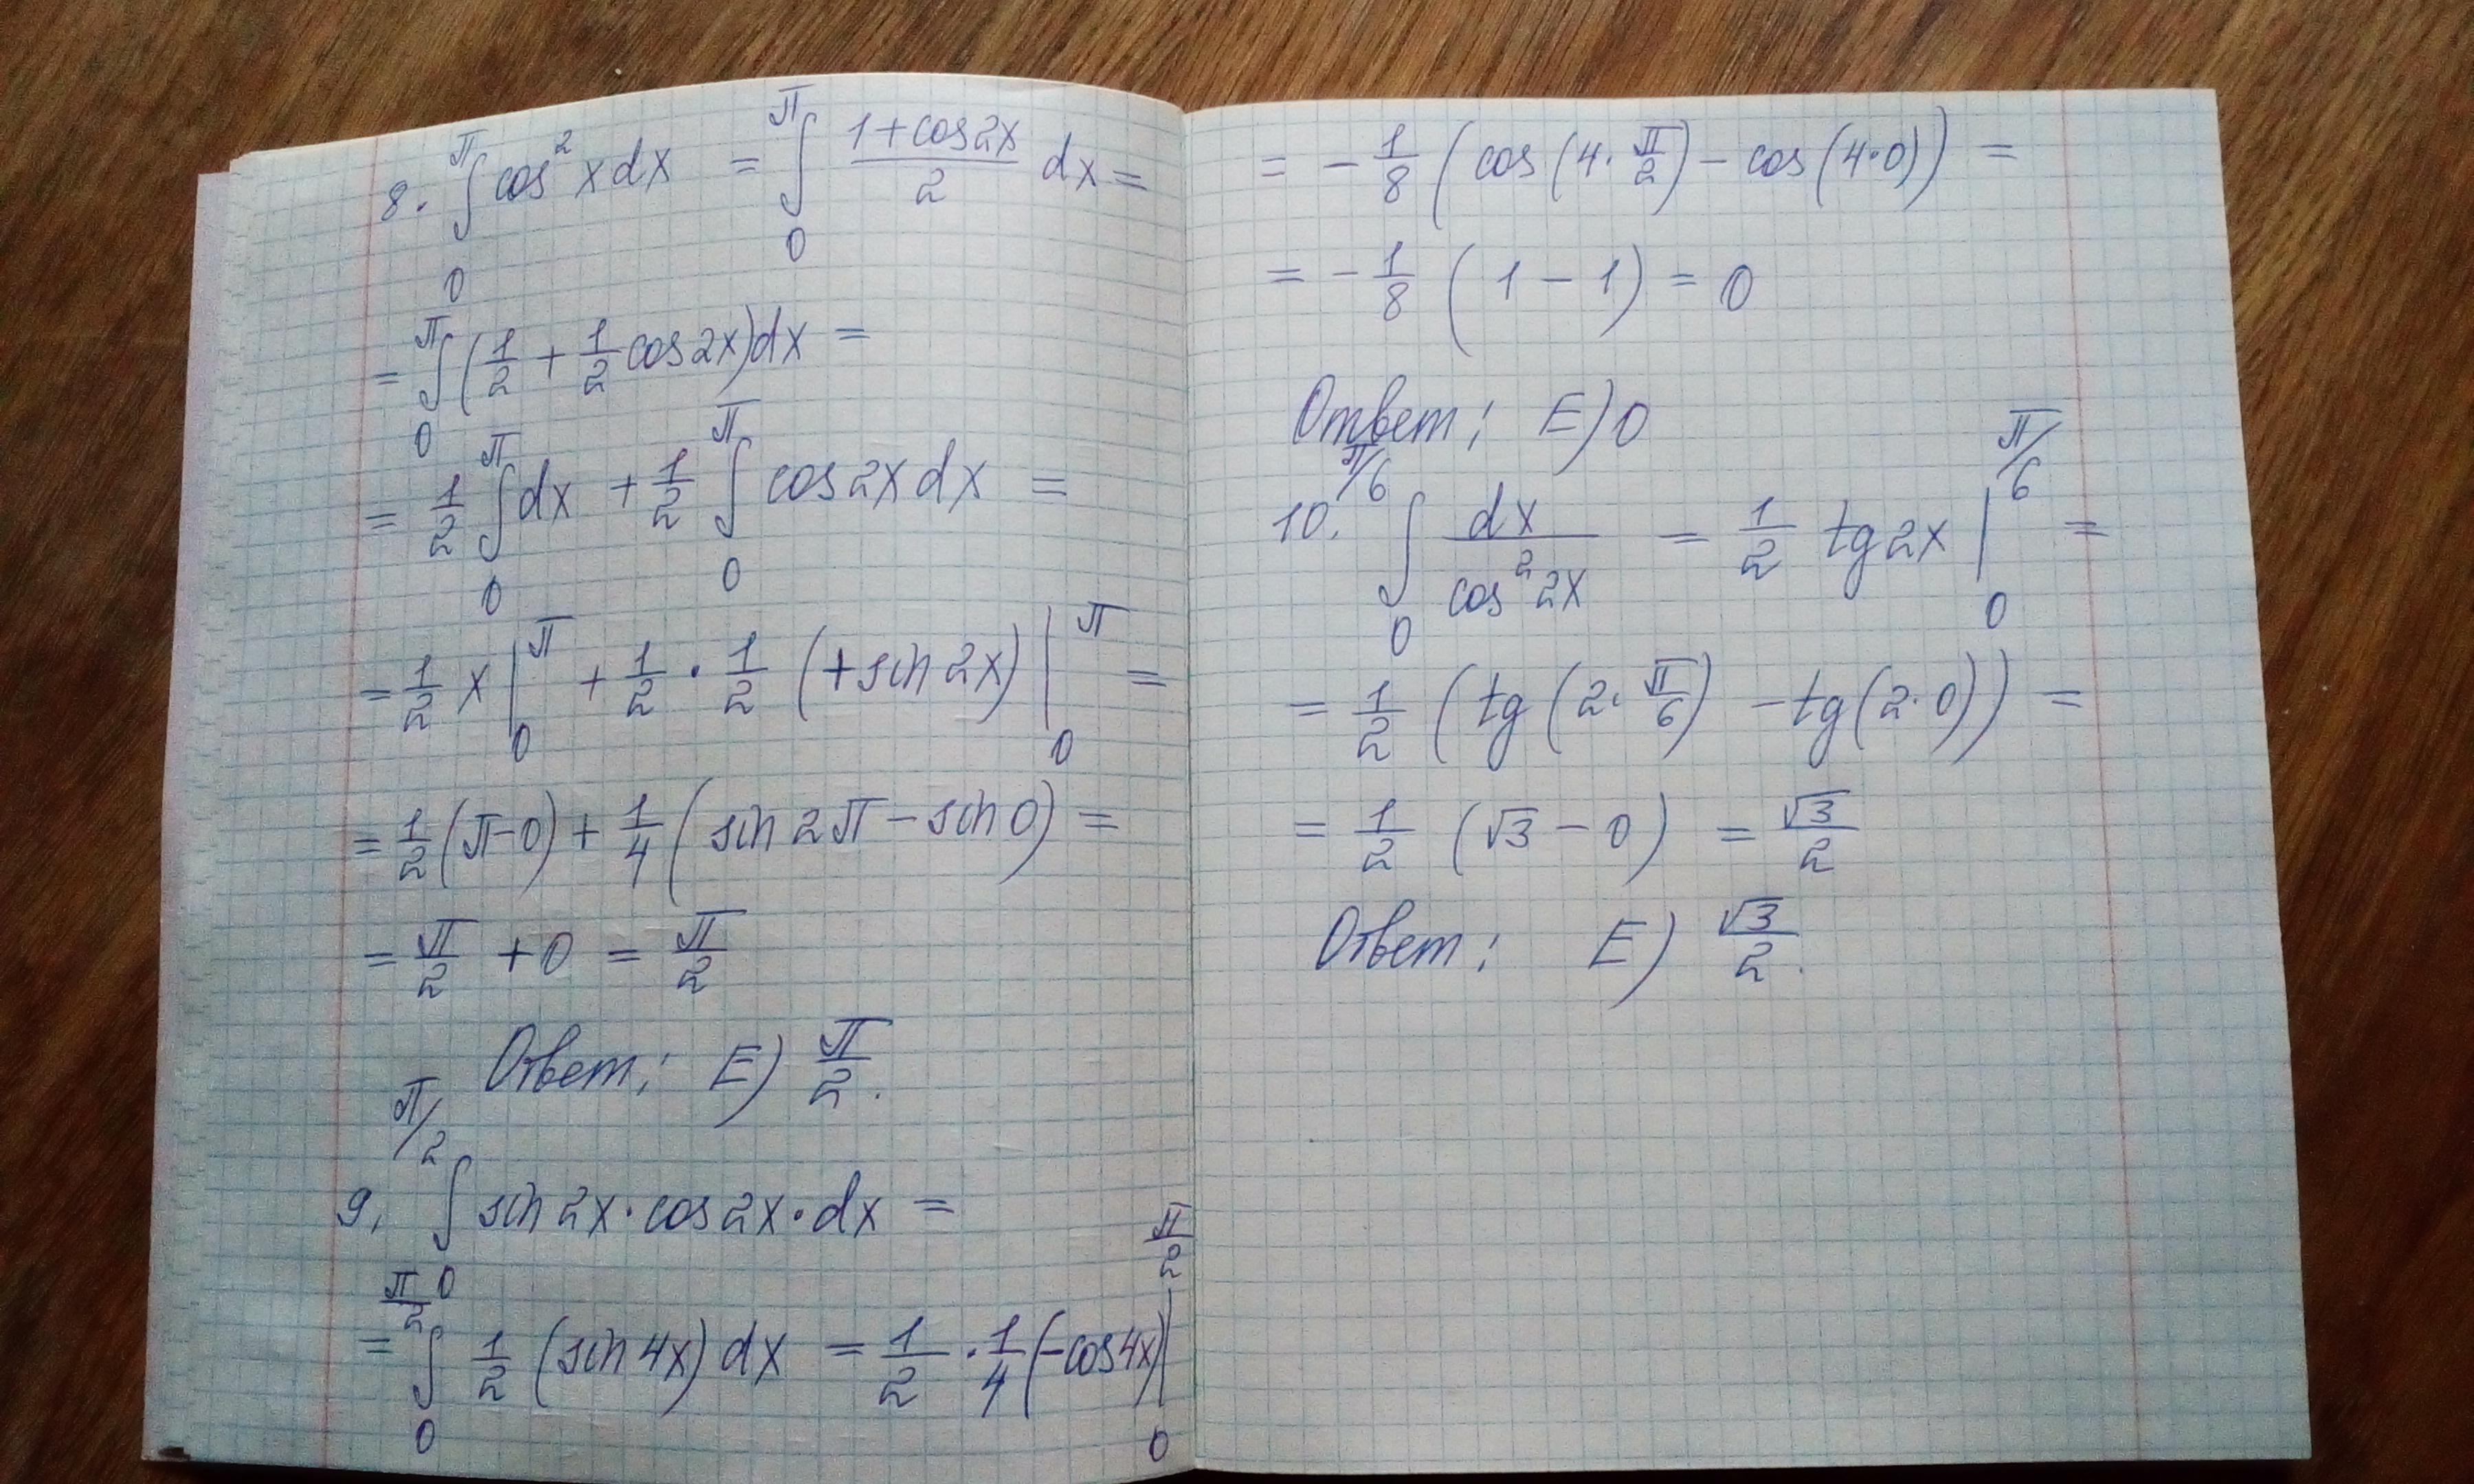 8. ∫₀^π cos² x dx = ∫₀^π (1+cos2x)/2 dx =
= ∫₀^π (1/2 + 1/2 cos2x)dx =
= 1/2 ∫₀^π dx + 1/2 ∫₀^π cos2x dx =
= 1/2 x |₀^π + 1/2 · 1/2 (+sin 2x) |₀^π =
= 1/2 (π-0) + 1/4 (sin 2π - sin 0) =
= π/2 + 0 = π/2
Ответ: E) π/2.
9. ∫₀^(π/2) sin 2x · cos 2x · dx =
= ∫₀^(π/2) 1/2 (sin 4x) dx = 1/2 · 1/4 (-cos4x) |₀^(π/2)
= - 1/8 (cos (4 · π/2) - cos (4·0)) =
= - 1/8 (1 - 1) = 0
Ответ: E) 0
10. ∫₀^(π/6) dx/(cos² 2x) = 1/2 tg 2x |₀^(π/6) =
= 1/2 (tg (2 · π/6) - tg (2·0)) =
= 1/2 (√3 - 0) = √3/2
Ответ: E) √3/2.